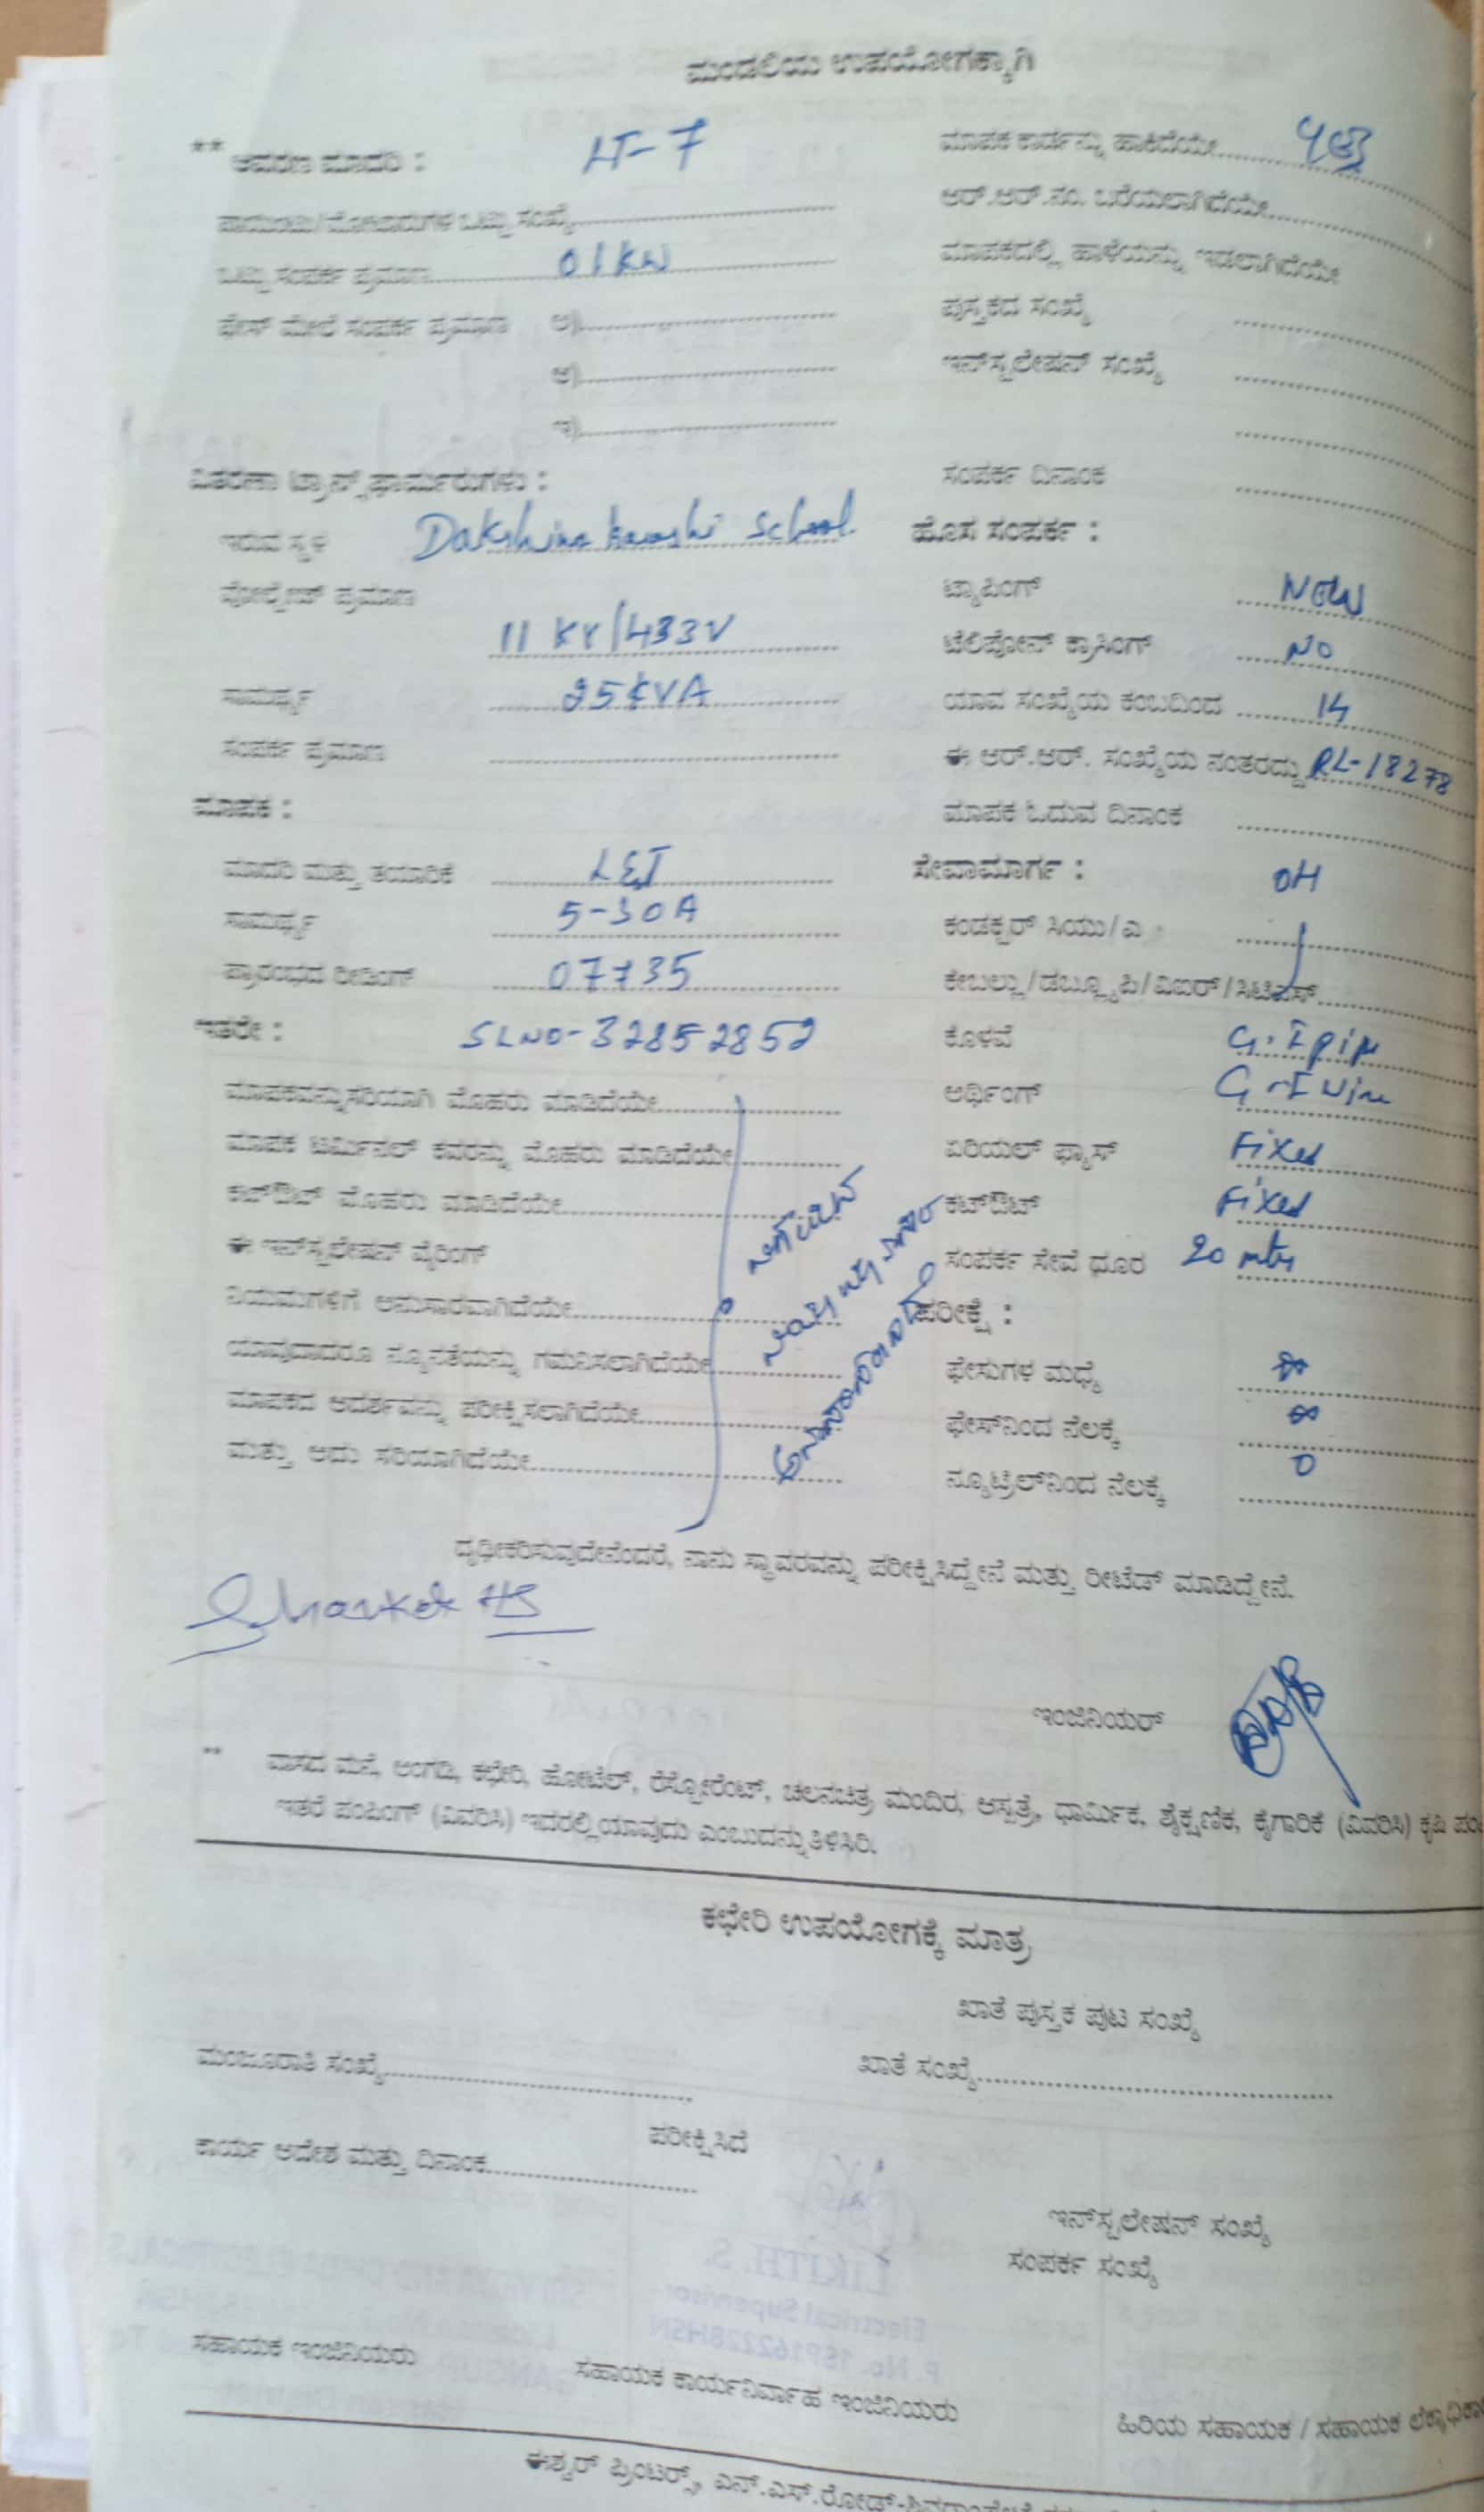 ಮಂಡಲಿಯ ಉಪಯೋಗಕ್ಕಾಗಿ
** ಆವರಣ ಮಾದರಿ : LT-7
ಮಾಪಕ ಕಾರ್ಡನ್ನು ಹಾಕಿದೆಯೇ
ಆರ್.ಆರ್.ನಂ. ಬರೆಯಲಾಗಿದೆಯೇ
ಒಟ್ಟು ಸಂಪರ್ಕ ಪ್ರಮಾಣ 01KW
ಮಾಪಕದಲ್ಲಿ ಹಾಳೆಯನ್ನು ಇಡಲಾಗಿದೆಯೇ
ಫೇಸ್ ಮೇಲೆ ಸಂಪರ್ಕ ಪ್ರಮಾಣ ಅ)
ಪುಸ್ತಕದ ಸಂಖ್ಯೆ
ಆ)
ಇನ್‌ಸ್ಟಲೇಷನ್ ಸಂಖ್ಯೆ
ಇ)
ವಿತರಣಾ ಟ್ರಾನ್ಸ್‌ಫಾರ್ಮರುಗಳು :
ಸಂಪರ್ಕ ದಿನಾಂಕ
ಇರುವ ಸ್ಥಳ Dakshina kaashi School
ಹೊಸ ಸಂಪರ್ಕ :
ವೋಲ್ಟೇಜ್ ಪ್ರಮಾಣ
11 KV/433V
ಟ್ಯಾಪಿಂಗ್ NEW
ಟೆಲಿಫೋನ್ ಕ್ರಾಸಿಂಗ್ NO
ಸಾಮರ್ಥ್ಯ 25KVA
ಯಾವ ಸಂಖ್ಯೆಯ ಕಂಬದಿಂದ 14
ಸಂಪರ್ಕ ಪ್ರಮಾಣ
ಈ ಆರ್.ಆರ್. ಸಂಖ್ಯೆಯ ನಂತರದ್ದು RL-18278
ಮಾಪಕ :
ಮಾಪಕ ಓದುವ ದಿನಾಂಕ
ಮಾದರಿ ಮತ್ತು ತಯಾರಿಕೆ L&T
ಸೇವಾಮಾರ್ಗ : OH
ಸಾಮರ್ಥ್ಯ 5-30A
ಕಂಡಕ್ಟರ್ ಸಿಯು/ಎ
ಪ್ರಾರಂಭದ ರೀಡಿಂಗ್ 07735
ಕೇಬಲ್ಲು/ಡಬ್ಲ್ಯೂಪಿ/ವಿಐರ್/ಸಿಟಿಎಸ್
ಇತರೇ : SLNO-32852852
ಕೊಳವೆ G.I pipe
ಮಾಪಕವನ್ನು ಸರಿಯಾಗಿ ಮೊಹರು ಮಾಡಿದೆಯೇ
ಅರ್ಥಿಂಗ್ G-I Wire
ಮಾಪಕ ಟರ್ಮಿನಲ್ ಕವರನ್ನು ಮೊಹರು ಮಾಡಿದೆಯೇ
ಏರಿಯಲ್ ಫ್ಯಾಸ್ Fixed
ಕಟ್‌ಔಟ್ ಮೊಹರು ಮಾಡಿದೆಯೇ
ಕಟ್‌ಔಟ್ Fixed
ಈ ಇನ್‌ಸ್ಟಲೇಷನ್ ವೈರಿಂಗ್
ಸಂಪರ್ಕ ಸೇವೆ ಧೂರ 20 mts
ನಿಯಮಗಳಿಗೆ ಅನುಸಾರವಾಗಿದೆಯೇ
ಪರೀಕ್ಷೆ :
ಯಾವುದಾದರೂ ನ್ಯೂನತೆಯನ್ನು ಗಮನಿಸಲಾಗಿದೆಯೇ
ಫೇಸುಗಳ ಮಧ್ಯೆ
ಮಾಪಕದ ಆದರ್ಶವನ್ನು ಪರೀಕ್ಷಿಸಲಾಗಿದೆಯೇ
ಫೇಸ್‌ನಿಂದ ನೆಲಕ್ಕೆ
ಮತ್ತು ಅದು ಸರಿಯಾಗಿದೆಯೇ
ನ್ಯೂಟ್ರಲ್‌ನಿಂದ ನೆಲಕ್ಕೆ 0
ದೃಢೀಕರಿಸುವುದೇನೆಂದರೆ, ನಾನು ಸ್ಥಾವರವನ್ನು ಪರೀಕ್ಷಿಸಿದ್ದೇನೆ ಮತ್ತು ರೀಟೆಡ್ ಮಾಡಿದ್ದೇನೆ.
ಇಂಜಿನಿಯರ್
** ವಾಸದ ಮನೆ, ಅಂಗಡಿ, ಕಛೇರಿ, ಹೋಟೆಲ್, ರೆಸ್ಟೋರೆಂಟ್, ಚಲನಚಿತ್ರ ಮಂದಿರ, ಆಸ್ಪತ್ರೆ, ಧಾರ್ಮಿಕ, ಶೈಕ್ಷಣಿಕ, ಕೈಗಾರಿಕೆ (ವಿವರಿಸಿ) ಕೃಷಿ
ಇತರೆ ಪಂಪಿಂಗ್ (ವಿವರಿಸಿ) ಇವರಲ್ಲಿ ಯಾವುದು ಎಂಬುದನ್ನು ತಿಳಿಸಿರಿ.
ಕಛೇರಿ ಉಪಯೋಗಕ್ಕೆ ಮಾತ್ರ
ಖಾತೆ ಪುಸ್ತಕ ಪುಟ ಸಂಖ್ಯೆ
ಮಂಜೂರಾತಿ ಸಂಖ್ಯೆ
ಖಾತೆ ಸಂಖ್ಯೆ
ಪರೀಕ್ಷಿಸಿದೆ
ಕಾರ್ಯ ಆದೇಶ ಮತ್ತು ದಿನಾಂಕ
ಇನ್‌ಸ್ಟಲೇಷನ್ ಸಂಖ್ಯೆ
ಸಂಪರ್ಕ ಸಂಖ್ಯೆ
ಸಹಾಯಕ ಇಂಜಿನಿಯರು
ಸಹಾಯಕ ಕಾರ್ಯನಿರ್ವಾಹ ಇಂಜಿನಿಯರು
ಹಿರಿಯ ಸಹಾಯಕ / ಸಹಾಯಕ
ಈಶ್ವರ್ ಪ್ರಿಂಟರ್ಸ್, ಎನ್.ಎಸ್.ರೋಡ್